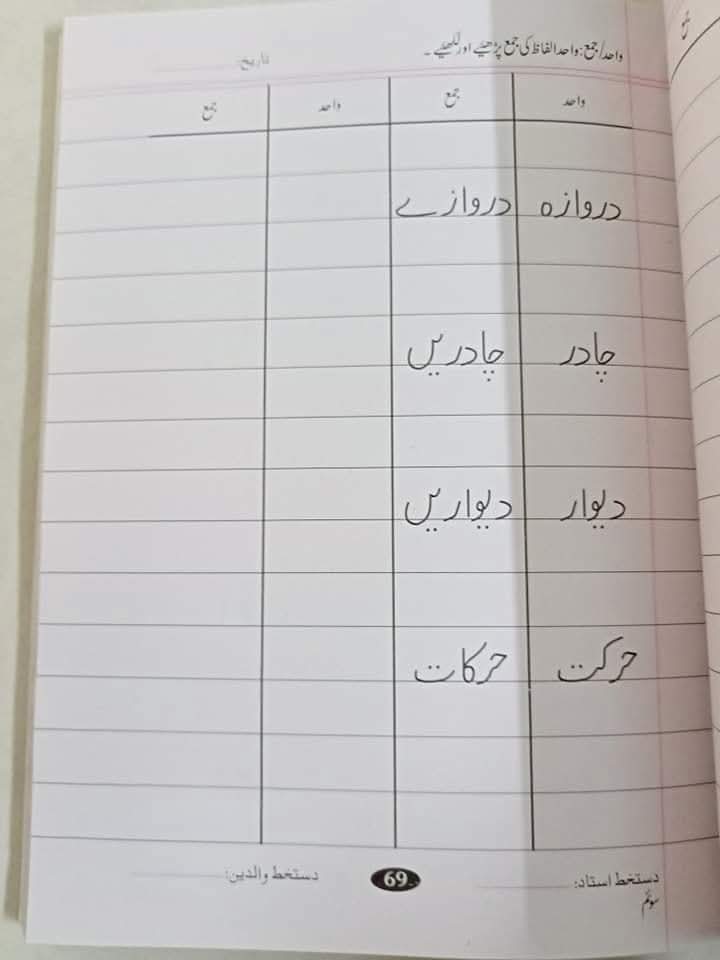 واحد/جمع: واحد الفاظ کی جمع پڑھیئے اور لکھیئے۔
تاریخ:
واحد جمع واحد جمع
دروازہ دروازے
چادر چادریں
دیوار دیواریں
حرکت حرکات
دستخط استاد: 69 دستخط والدین:
سوئم
جمع